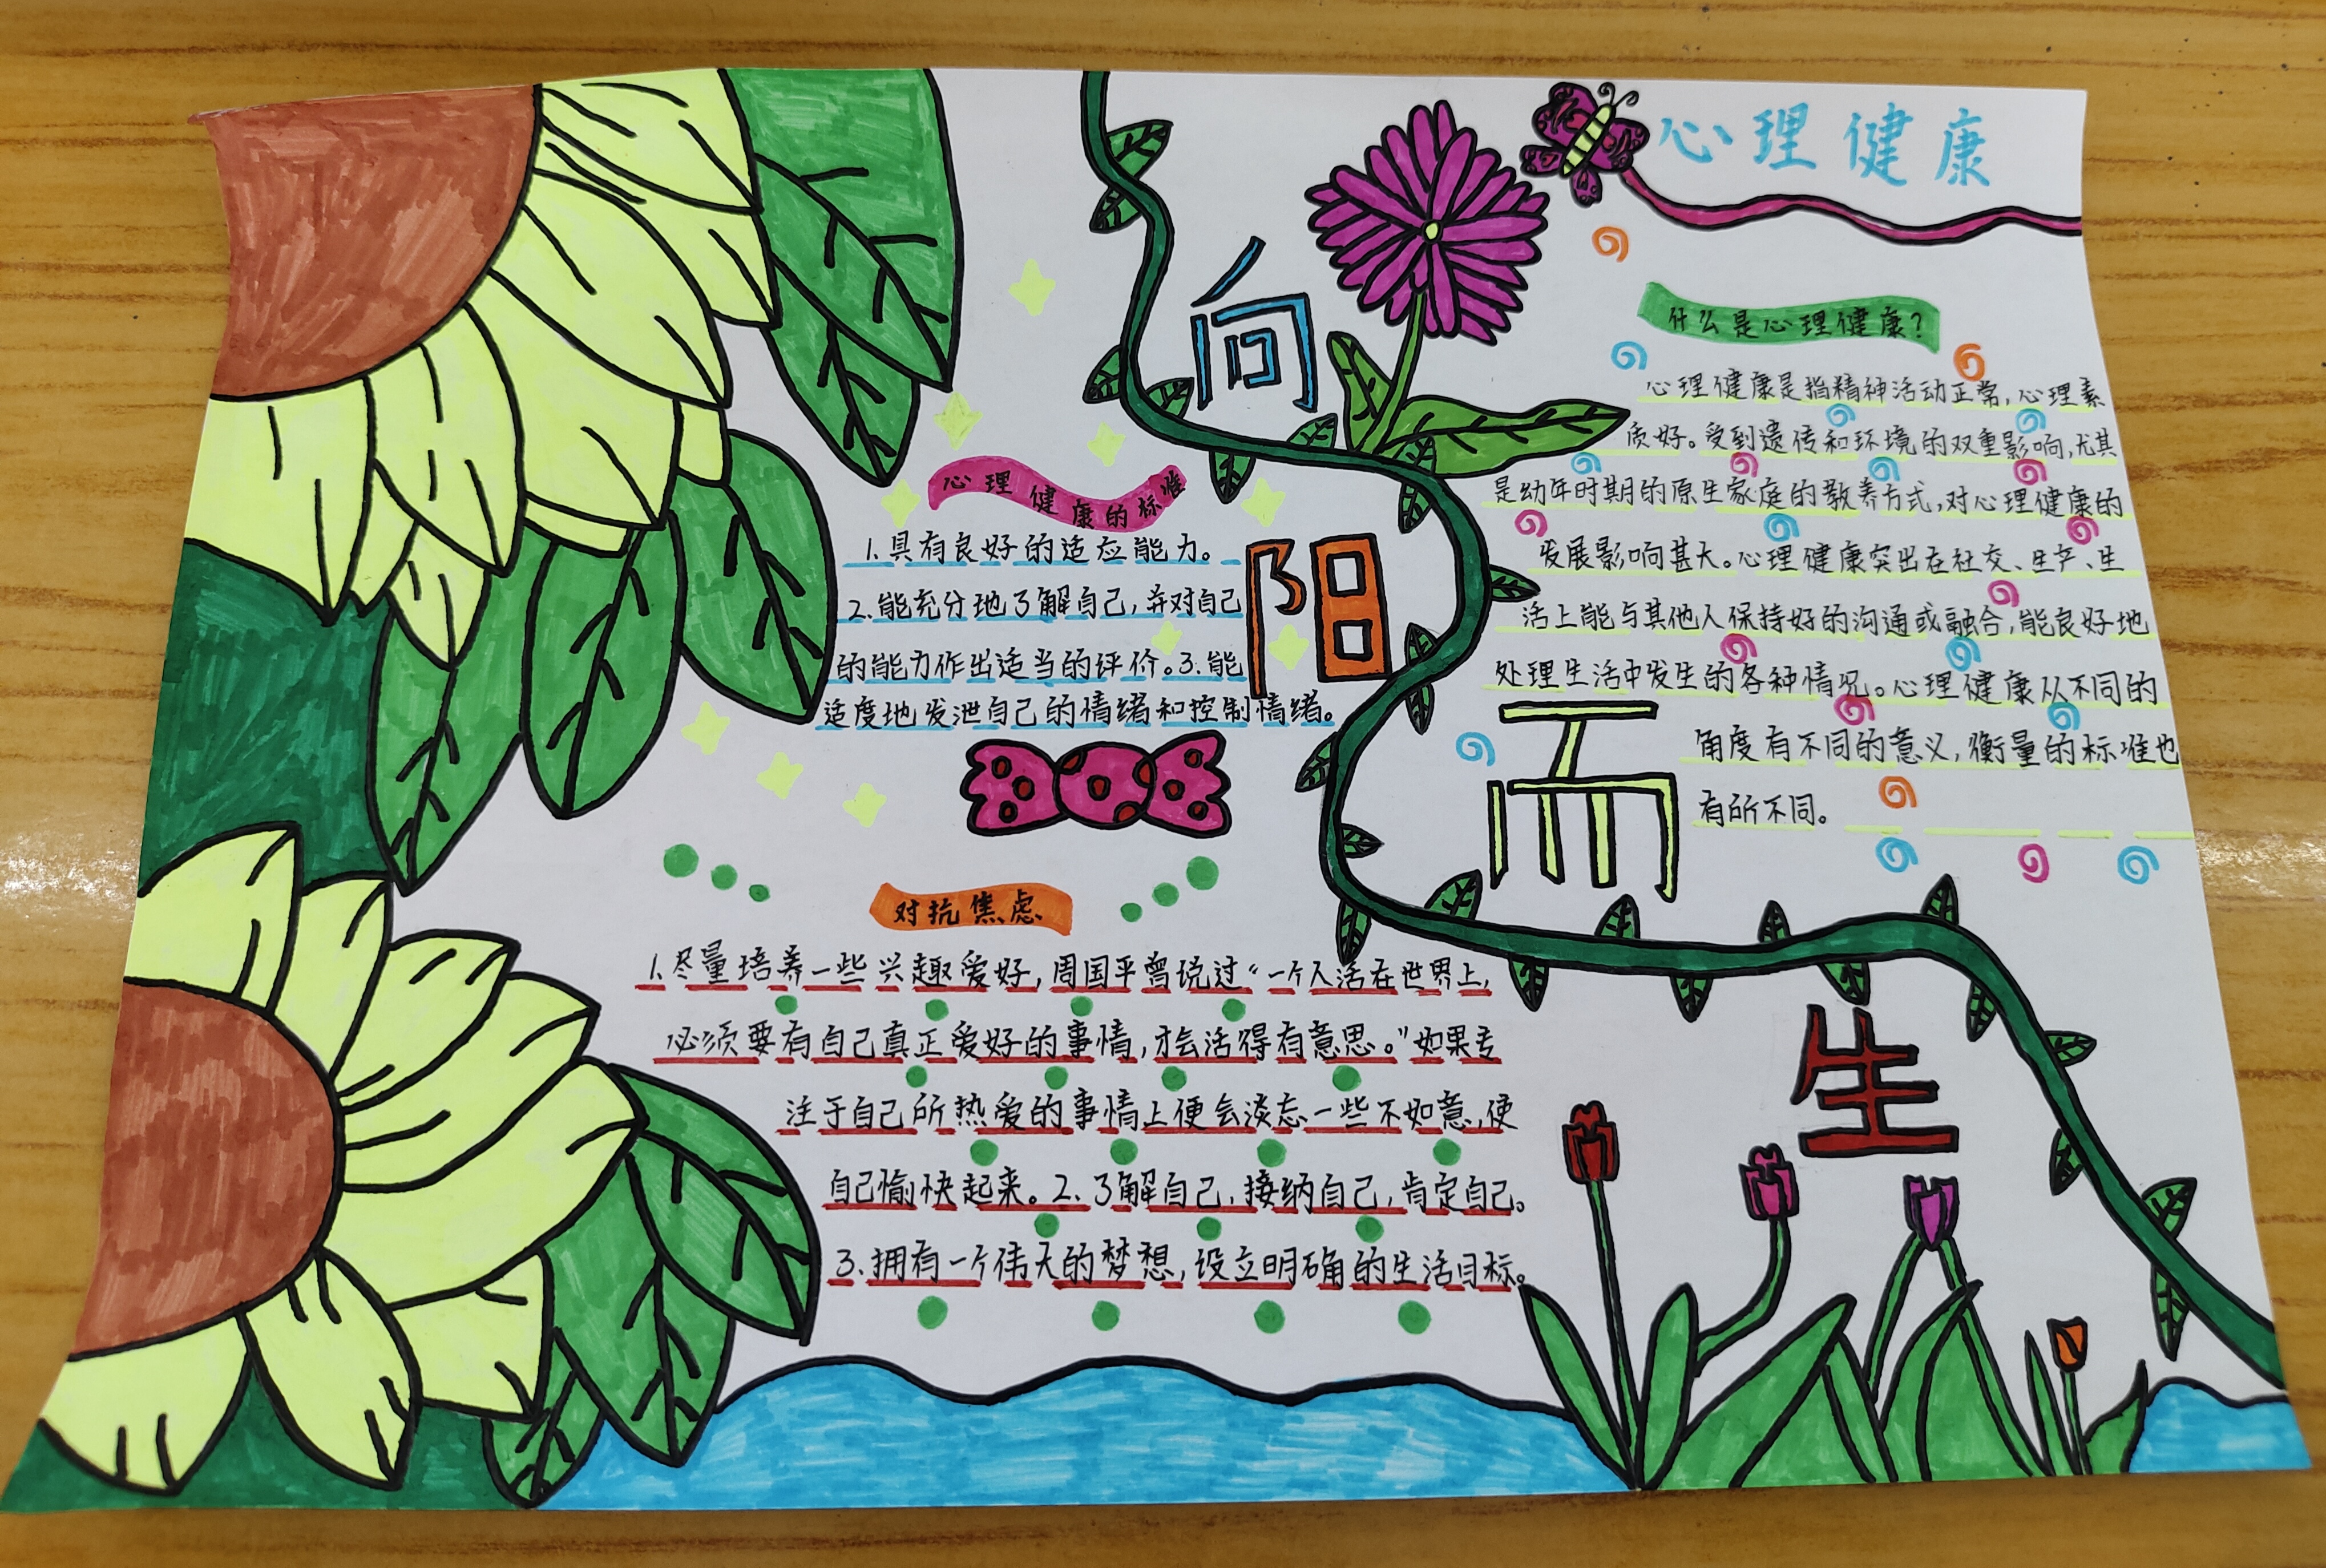 心理健康
向
阳
而
生
什么是心理健康?
心理健康是指精神活动正常,心理素
质好。受到遗传和环境的双重影响,尤其
是幼年时期的原生家庭的教养方式,对心理健康的
发展影响甚大。心理健康突出在社交、生产、生
活上能与其他人保持好的沟通或融合,能良好地
处理生活中发生的各种情况。心理健康从不同的
角度有不同的意义,衡量的标准也
有所不同。
心理健康的标准
1.具有良好的适应能力。
2.能充分地了解自己,并对自己
的能力作出适当的评价。3.能
适度地发泄自己的情绪和控制情绪。
对抗焦虑
1.尽量培养一些兴趣爱好,周国平曾说过“一个人活在世界上,
必须要有自己真正爱好的事情,才会活得有意思。”如果专
注于自己所热爱的事情上便会淡忘一些不如意,使
自己愉快起来。2.了解自己,接纳自己,肯定自己。
3.拥有一个伟大的梦想,设立明确的生活目标。